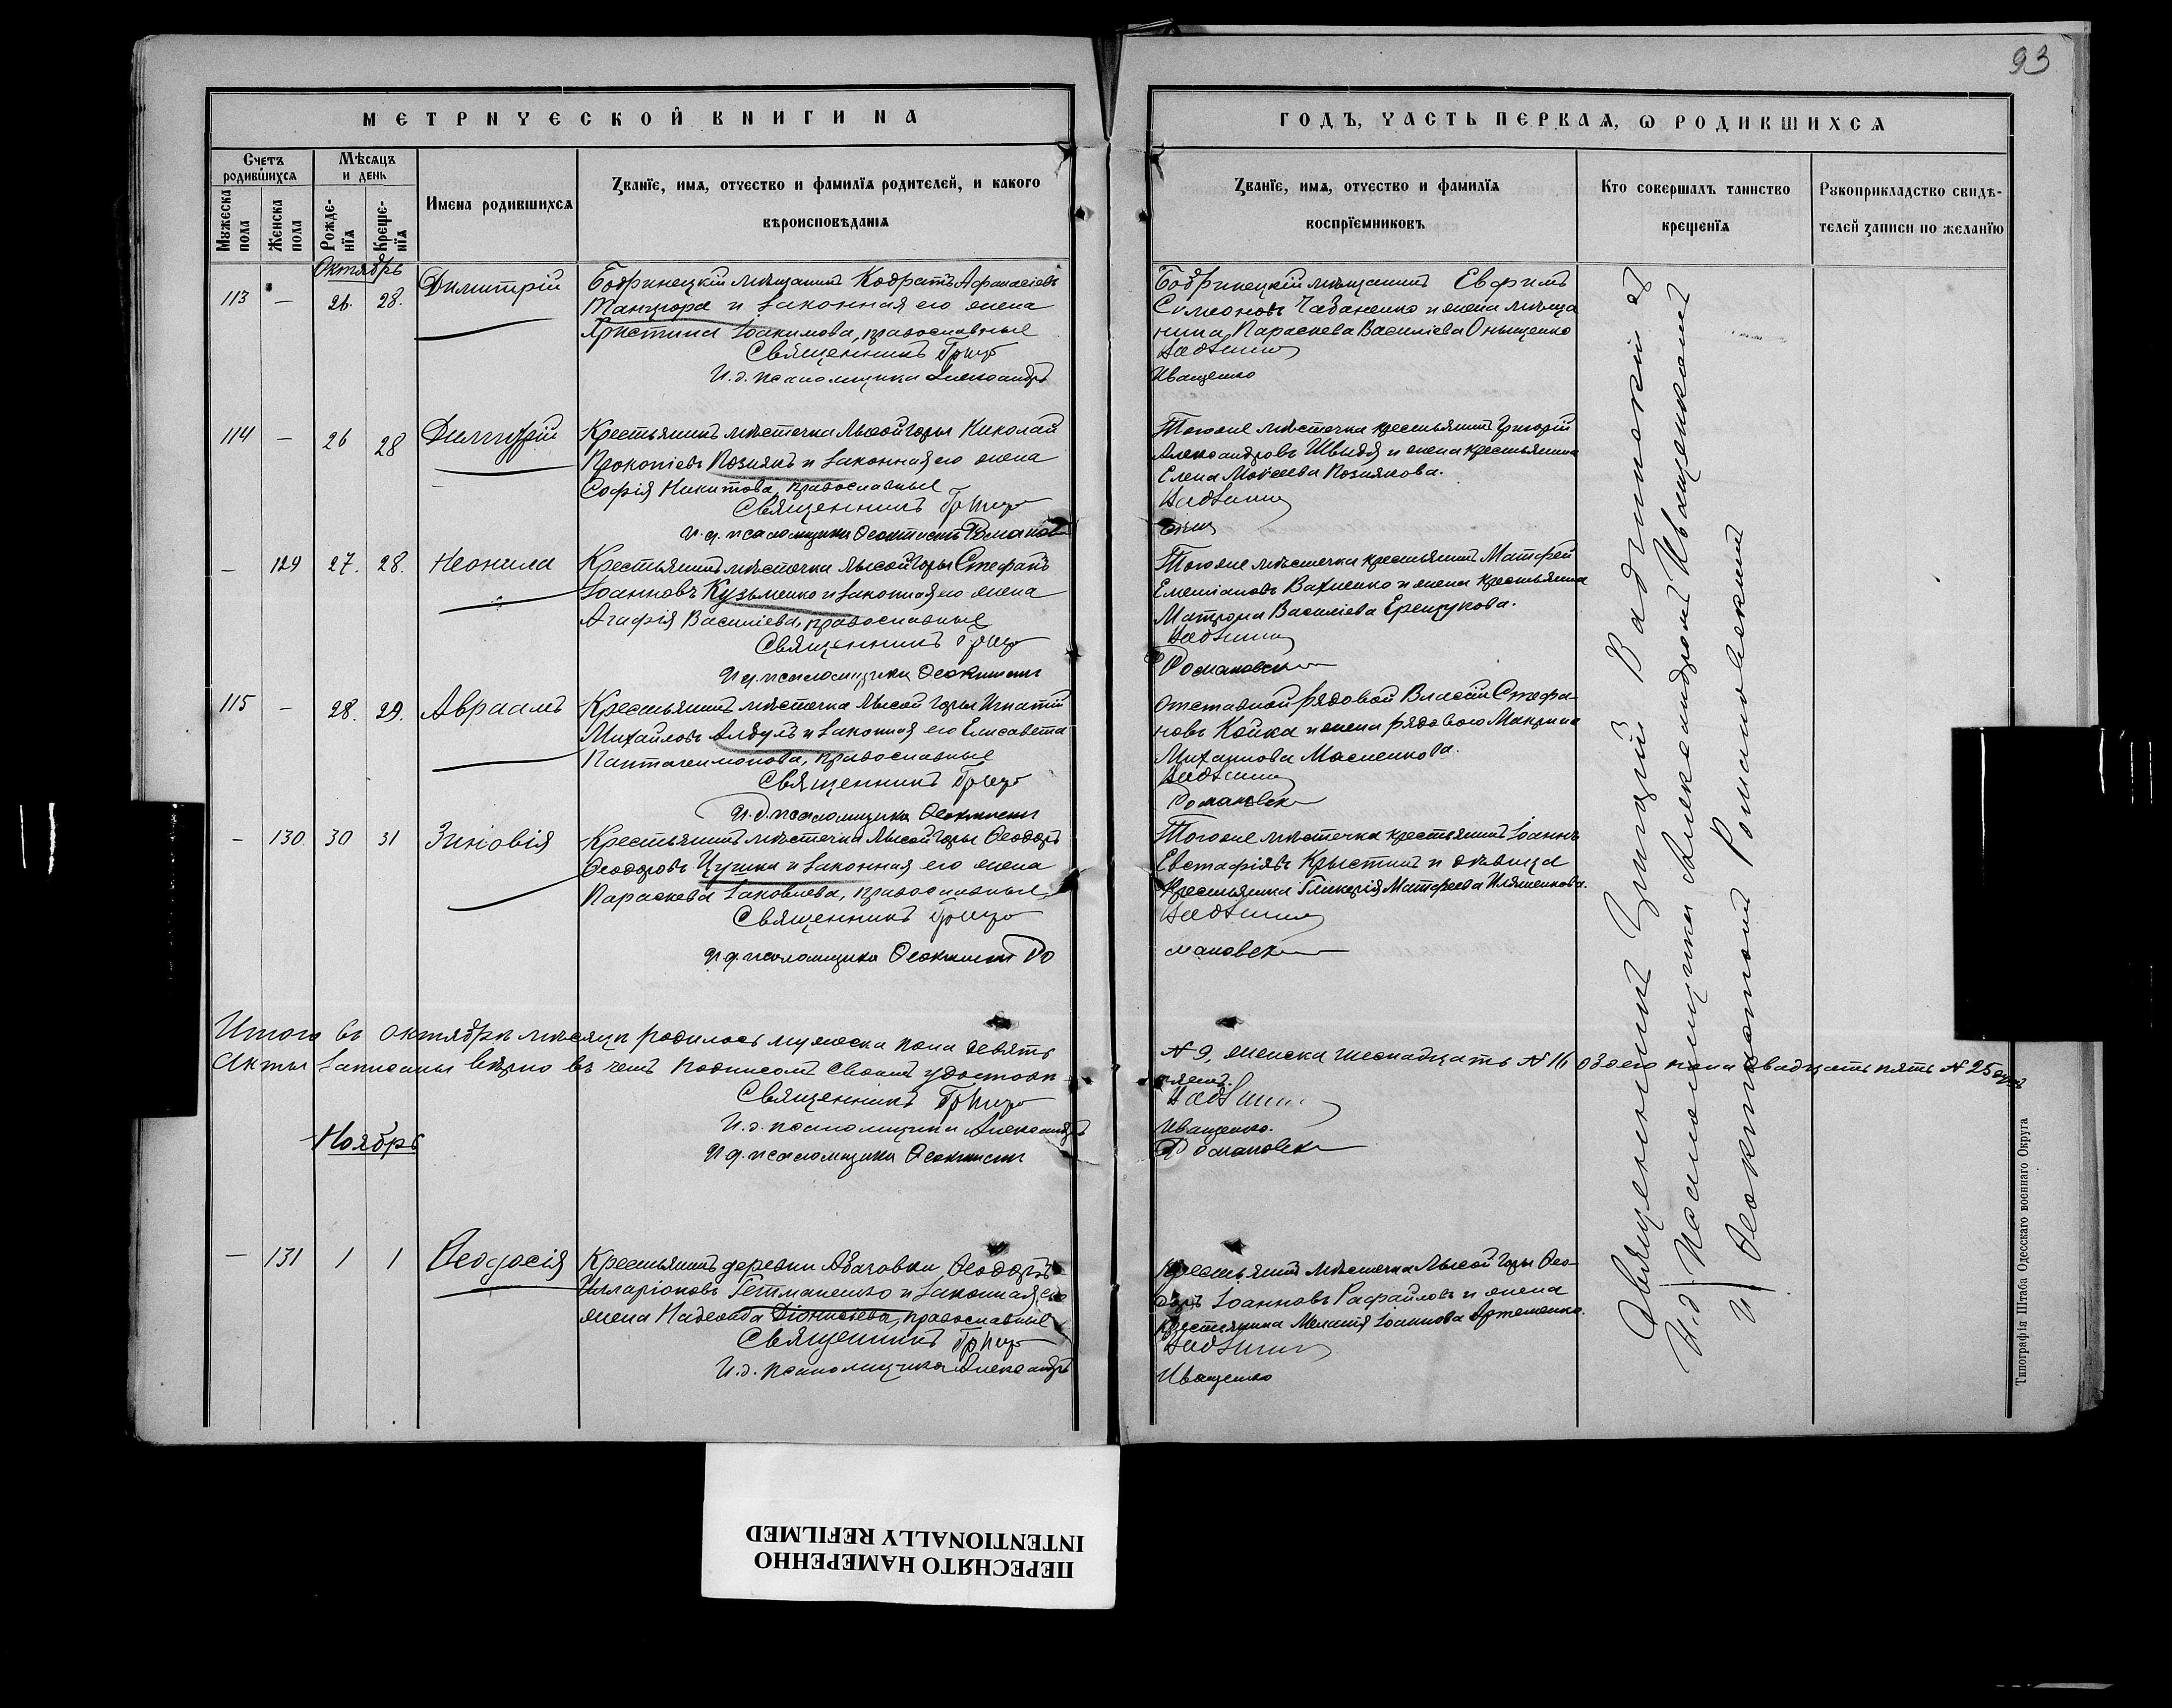 93
МЕТРИЧЕСКОЙ КНИГИ НА
ГОДЪ, ЧАСТЬ ПЕРВАЯ, Ѡ РОДИВШИХСЯ
Счетъ родившихся
Мѣсяцъ и день
Мужеска пола
Женска пола
Рожденїя
Крещенїя
Имена родившихся
Званїе, имя, отчество и фамилїя родителей, и какого
вѣроисповѣданія
Званїе, имя, отчество и фамилїя
воспрїемниковъ
Кто совершалъ таинство
крещенїя
Рукоприкладство свидѣ-
телей записи по желанїю
Октябрь
113 — 26. 28. Димитрій
Бобринецкій мѣщанинъ Кодратъ Афанасіевъ
Танцюра и законная его жена
Христина Іоакимова, православные
Священникъ Григо
И. д. псаломщика Александръ
Бобринецкій мѣщанинъ Евфимъ
Симеоновъ Чабаненко и жена мѣща
нина Параскева Василіева Онищенко
Иващенко
114 — 26 28 Димитрій
Крестьянинъ мѣстечка Лысой горы Николай
Прокопіевъ Познякъ и законная его жена
Софія Никитова, православные
Священникъ Григо
И. д. псаломщика Ѳеоктистъ Романов
Тогоже мѣстечка крестьянинъ Григорій
Александровъ Швыдя и жена крестьянина
Елена Моѵсеева Познякова.
— 129 27. 28. Неонила
Крестьянинъ мѣстечка Лысой Горы Стефанъ
Іоанновъ Кузьменко и законная его жена
Агафія Василіева, православные
Священникъ Григо
И д. псаломщика Ѳеоктистъ
Тогоже мѣстечка крестьянинъ Матфей
Емеліановъ Вахненко и жена крестьянина
Матрона Василіева Ерещукова.
Романовск
115 — 28. 29. Авраамъ
Крестьянинъ мѣстечка Лысой Горы Игнатій
Михайловъ и законная его Елисавета
Пантелеимонова, православные
Священникъ Григо
И. д. псаломщика Ѳеоктистъ
Отставной рядовой Власій Стефа-
новъ Койка и жена рядового Макрина
Михаилова
Романовск
— 130 30 31 Зиновія
Крестьянинъ мѣстечка Лысой Горы Ѳеодоръ
Ѳеодоровъ и законная его жена
Параскева Іаковлева, православные
Священникъ Григо
И д. псаломщика Ѳеоктистъ Ро
Тогоже мѣстечка крестьянинъ Іоаннъ
Евстафіевъ и дѣвица
Крестьянка Гликерія Матфеева Иляшенкова.
мановск
Итого въ октябрѣ мѣсяцѣ родилось мужеска пола девять
№ 9, женска шеснадцать № 16 обоего пола двадцать пять № 25
Акты записаны вѣрно въ чемъ подписомъ своимъ удостовѣ
ряемъ.
Священникъ Григо
И. д. псаломщика Александръ
Иващенко.
И д. псаломщика Ѳеоктистъ
Романовск
Ноябрь
— 131 1 1 Ѳеодосія
Крестьянинъ деревни Ѳеодоръ
Илларіоновъ Гетманенко и законная его
жена Надежда Діонисіева, православные
Священникъ Григо
И. д. псаломщика Александръ
Крестьянинъ мѣстечка Лысой Горы Ѳео-
доръ Іоанновъ Рафаиловъ и жена
крестьянина Меланія Іоаннова Артеменко.
Иващенко
Священникъ Григорій
И. д. Псаломщика Александромъ Иващенкомъ
и Ѳеоктистомъ Романовскимъ
Типографія Штаба Одесскаго военнаго Округа
ПЕРЕСНЯТО НАМЕРЕННО
INTENTIONALLY REFILMED